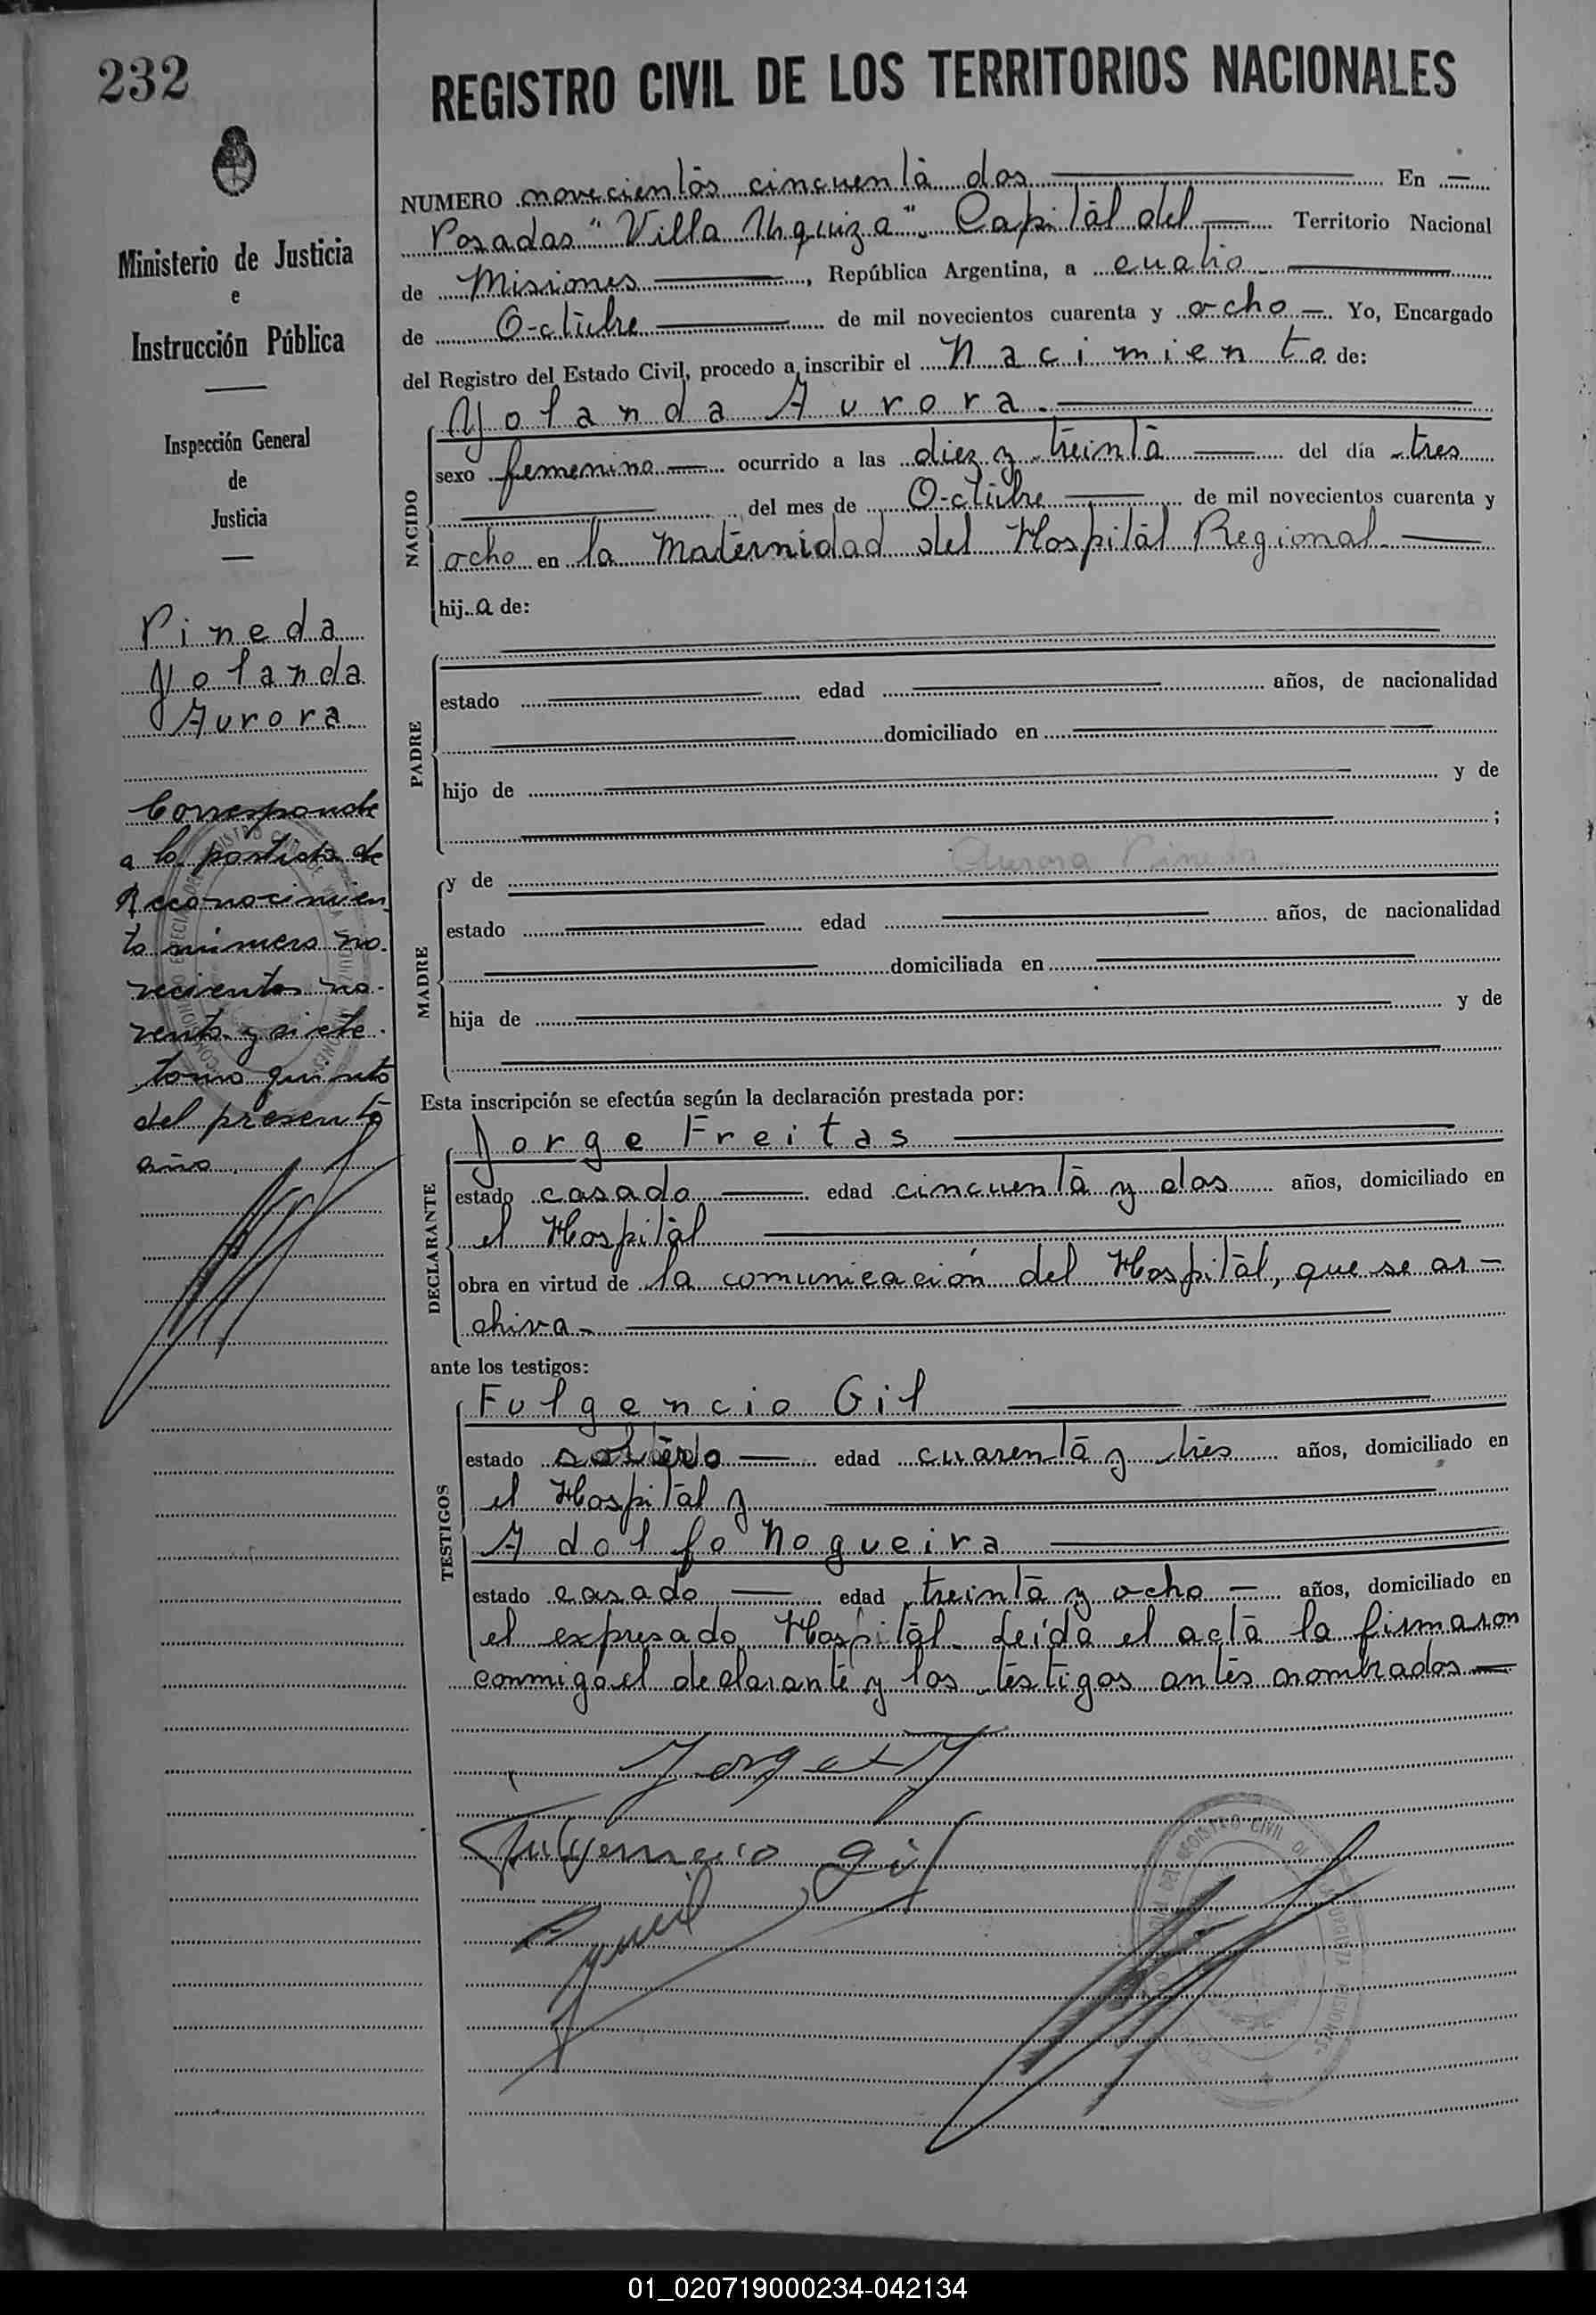 232
REGISTRO CIVIL DE LOS TERRITORIOS NACIONALES
Ministerio de Justicia
e
Instrucción Pública
Inspección General
de
Justicia
Pineda
Yolanda
Aurora
Corresponde
a la partida de
Reconocimien
to número no-
vecientos no-
venta y siete
tomo quinto
del presente
año
NUMERO novecientos cincuenta dos En
Posadas "Villa Urquiza". Capital del Territorio Nacional
de Misiones, República Argentina, a cuatro
de Octubre de mil novecientos cuarenta y ocho. Yo, Encargado
del Registro del Estado Civil, procedo a inscribir el Nacimiento de:
NACIDO
Yolanda Aurora.
sexo femenino ocurrido a las diez y treinta del día tres
del mes de Octubre de mil novecientos cuarenta y
ocho en la Maternidad del Hospital Regional
hija de:
PADRE
estado edad años, de nacionalidad
domiciliado en
hijo de y de
;
MADRE
y de Aurora Pineda
estado edad años, de nacionalidad
domiciliada en
hija de y de
Esta inscripción se efectúa según la declaración prestada por:
DECLARANTE
Jorge Freitas
estado casado edad cincuenta y dos años, domiciliado en
el Hospital
obra en virtud de la comunicación del Hospital, que se ar-
chiva.
ante los testigos:
TESTIGOS
Fulgencio Gil
estado soltero edad cuarenta y tres años, domiciliado en
el Hospital y
Adolfo Nogueira
estado casado edad treinta y ocho años, domiciliado en
el expresado Hospital. Leída el acta la firmaron
conmigo el declarante y los testigos antes nombrados
Fulgencio Gil
01_020719000234-042134